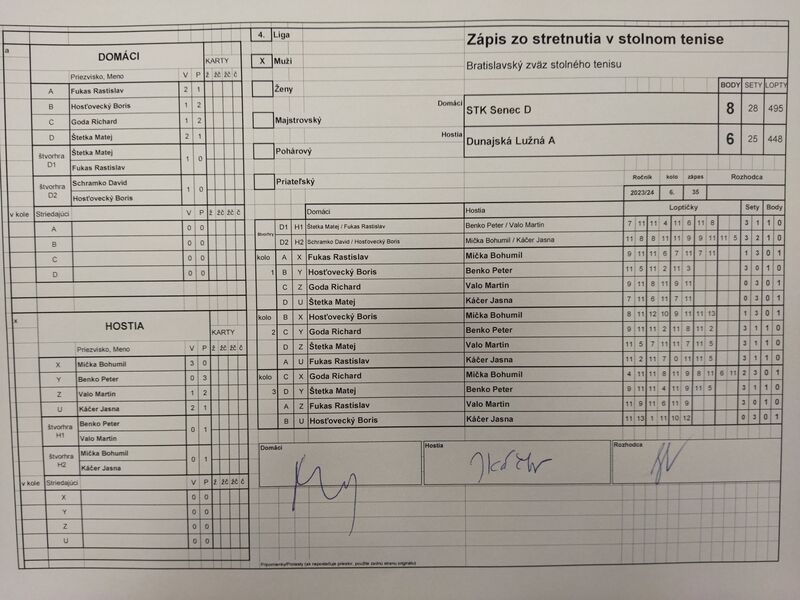 4. Liga
X Muži
Ženy
Majstrovský
Pohárový
Priateľský
Zápis zo stretnutia v stolnom tenise
Bratislavský zväz stolného tenisu
BODY SETY LOPTY
Domáci STK Senec D 8 28 495
Hostia Dunajská Lužná A 6 25 448
Ročník kolo zápas Rozhodca
2023/24 6. 35
DOMÁCI
KARTY
Priezvisko, Meno V P ž žč žč č
A Fukas Rastislav 2 1
B Hosťovecký Boris 1 2
C Goda Richard 1 2
D Štetka Matej 2 1
štvorhra D1 Štetka Matej 1 0
Fukas Rastislav
štvorhra D2 Schramko David 1 0
Hosťovecký Boris
v kole Striedajúci V P ž žč žč č
A 0 0
B 0 0
C 0 0
D 0 0
HOSTIA
KARTY
Priezvisko, Meno V P ž žč žč č
X Mička Bohumil 3 0
Y Benko Peter 0 3
Z Valo Martin 1 2
U Káčer Jasna 2 1
štvorhra H1 Benko Peter 0 1
Valo Martin
štvorhra H2 Mička Bohumil 0 1
Káčer Jasna
v kole Striedajúci V P ž žč žč č
X 0 0
Y 0 0
Z 0 0
U 0 0
Domáci Hostia Loptičky Sety Body
štvorhry D1 H1 Štetka Matej / Fukas Rastislav Benko Peter / Valo Martin 7 11 11 4 11 6 11 8 3 1 1 0
D2 H2 Schramko David / Hosťovecký Boris Mička Bohumil / Káčer Jasna 11 8 8 11 11 9 9 11 11 5 3 2 1 0
kolo A X Fukas Rastislav Mička Bohumil 9 11 11 6 7 11 7 11 1 3 0 1
1 B Y Hosťovecký Boris Benko Peter 11 5 11 2 11 3 3 0 1 0
C Z Goda Richard Valo Martin 9 11 8 11 9 11 0 3 0 1
D U Štetka Matej Káčer Jasna 7 11 6 11 7 11 0 3 0 1
kolo B X Hosťovecký Boris Mička Bohumil 8 11 12 10 9 11 11 13 1 3 0 1
2 C Y Goda Richard Benko Peter 9 11 11 2 11 8 11 2 3 1 1 0
D Z Štetka Matej Valo Martin 11 5 7 11 11 7 11 5 3 1 1 0
A U Fukas Rastislav Káčer Jasna 11 2 11 7 0 11 11 5 3 1 1 0
kolo C X Goda Richard Mička Bohumil 4 11 11 8 11 9 8 11 6 11 2 3 0 1
3 D Y Štetka Matej Benko Peter 9 11 11 4 11 9 11 5 3 1 1 0
A Z Fukas Rastislav Valo Martin 11 9 11 6 11 9 3 0 1 0
B U Hosťovecký Boris Káčer Jasna 11 13 1 11 10 12 0 3 0 1
Domáci
Hostia
Rozhodca
Pripomienky/Protesty (ak nepostačuje priestor, použite zadnú stranu originálu)